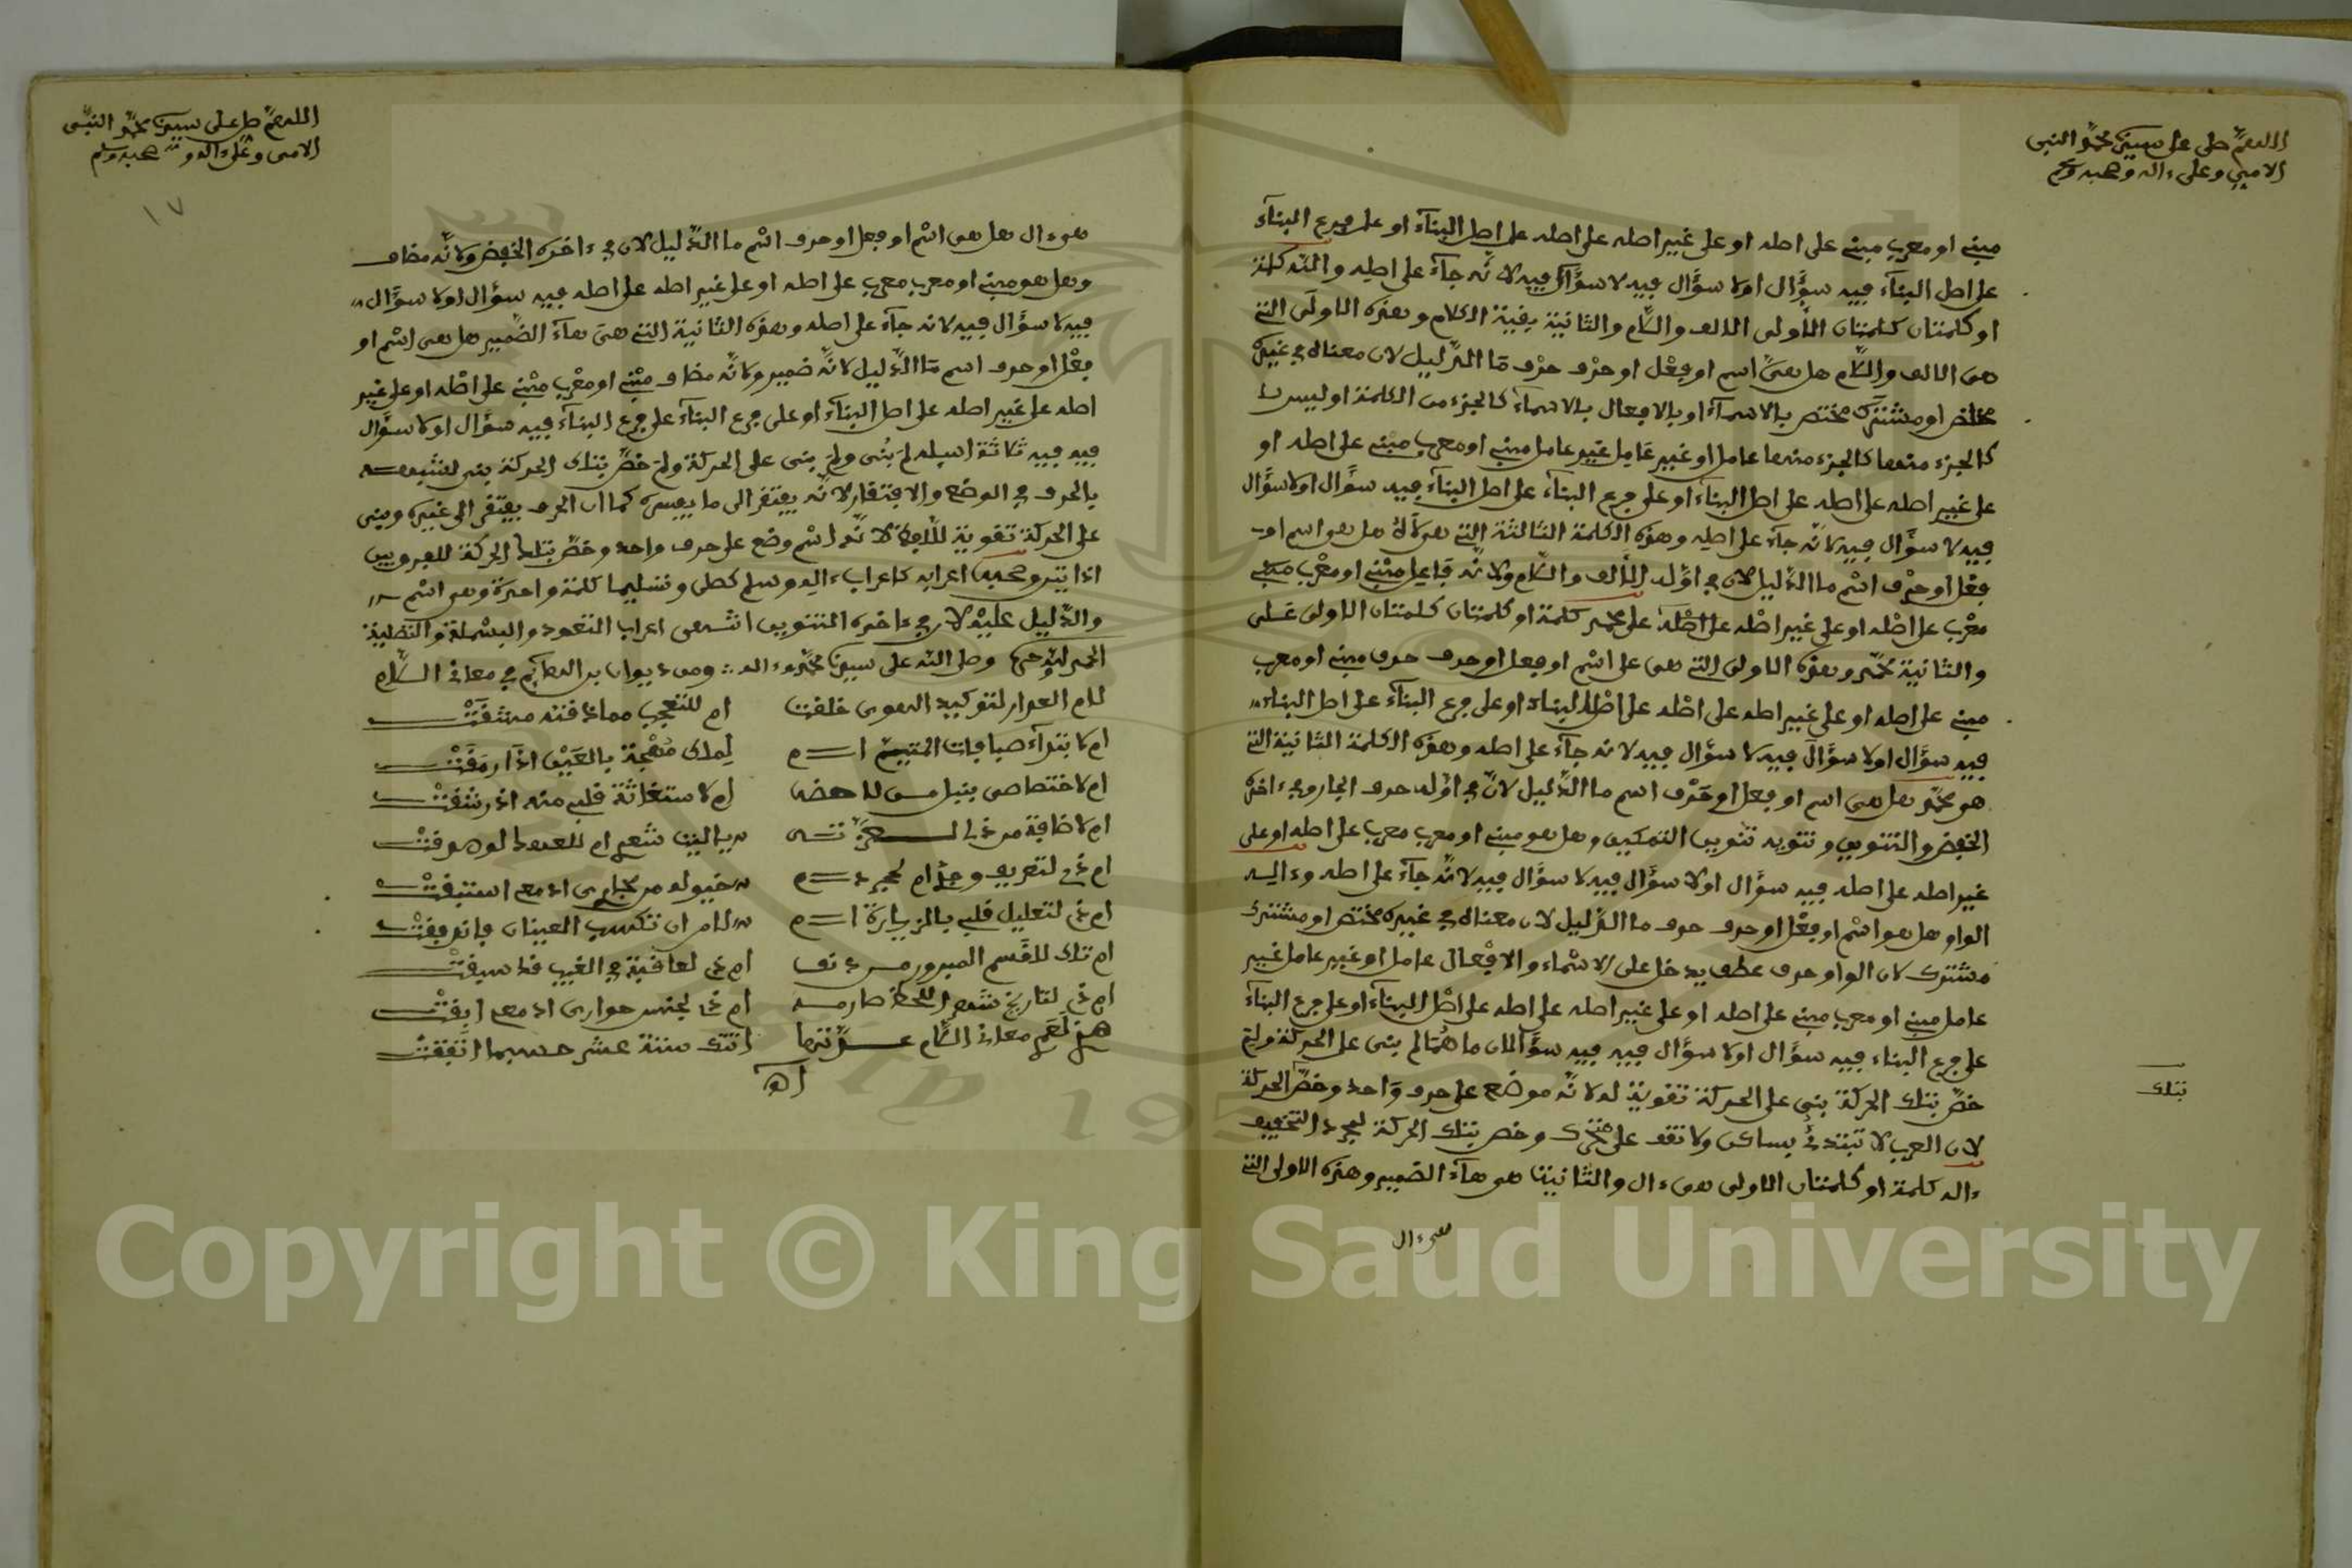 اللهم صل على سيدنا محمد النبي
الامي وعلى ءاله وصحبه وسلم
مبني او معرب مبني على اصله او على غير اصله على اصله على اصل البنآء او على فرع البنآء
على اصل البنآء فيه سؤال اولا سؤال فيه لا سؤال فيه لانه جآء على اصله والله كلمة
او كلمتان كلمتان الأولى الالف واللام والثانية بقية الكلام وهذه الاولى التي
هي الالف واللام هل هي اسم او فعل او حرف حرف ما الدليل لان معناه في غيره
مختص او مشترك مختص بالاسمآء او بالافعال بالاسمآء كالجزء من الكلمة او ليس
كالجزء منها كالجزء منها عامل او غير عامل غير عامل مبني او معرب مبني على اصله او
على غير اصله على اصله على اصل البنآء او على فرع البنآء على اصل البنآء فيه سؤال اولا سؤال
فيه لا سؤال فيه لانه جآء على اصله وهذه الكلمة الثالثة التي هي هل هو اسم او
فعل او حرف اسم ما الدليل لان في اوله الألف واللام ولانه فاعل مبني او معرب مبني
معرب على اصله او على غير اصله على اصله على محمد كلمة او كلمتان كلمتان الاولى على
والثانية محمد وهذه الاولى التي هي على اسم او فعل او حرف حرف مبني او معرب
مبني على اصله او على غير اصله على اصله على اصل البناء او على فرع البنآء على اصل البناء
فيه سؤال اولا سؤال فيه لا سؤال فيه لانه جآء على اصله وهذه الكلمة الثانية التي
هو محمد هل هي اسم او فعل او حرف اسم ما الدليل لان في اوله حرف الجار وفي ءاخره
الخفض والتنوين وتنوينه تنوين التمكين وهل هو مبني او معرب معرب على اصله او على
غير اصله على اصله فيه سؤال اولا سؤال فيه لا سؤال فيه لانه جآء على اصله وءاله
الواو هل هو اسم او فعل او حرف حرف ما الدليل لان معناه في غيره مختص او مشترك
مشترك لان الواو حرف عطف يدخل على الاسماء والافعال عامل او غير عامل غير
عامل مبني او معرب مبني على اصله او على غير اصله على اصله على اصل البناء او على فرع البنآء
على فرع البناء فيه سؤال اولا سؤال فيه فيه سؤالان ما هما لم بني على الحركة ولم
خص بتلك الحركة بني على الحركة تقوية له لانه موضع على حرف واحد وخص الحركة
بتلك
لان العرب لا تبتدئ بساكن ولا تقف على متحرك وخص بتلك الحركة لمجرد التخفيف
ءاله كلمة او كلمتان الاولى هي ءال والثانية هي هآء الضمير وهذه الاولى التي
هي ءال
اللهم صل على سيدنا محمد النبي
الامي وعلى ءاله وصحبه وسلم
١٧
هي ءال هل هي اسم او فعل او حرف اسم ما الدليل لان في ءاخره الخفض ولانه مضاف
وهل هو مبني او معرب معرب على اصله او على غير اصله على اصله فيه سؤال اولا سؤال
فيه لا سؤال فيه لانه جآء على اصله وهذه الثانية التي هي هآء الضمير هل هي اسم او
فعل او حرف اسم ما الدليل لانه ضمير ولانه مضاف مبني او معرب مبني على اصله او على غير
اصله على غير اصله على اصل البنآء او على فرع البنآء على فرع البنآء فيه سؤال اولا سؤال
فيه فيه ثلاثة اسيلة لم بني ولم بني على الحركة ولم خص بتلك الحركة بني لشبهه
بالحرف في الوضع والافتقار لانه يفتقر الى ما يفسره كما ان الحرف يفتقر الى غيره وبني
على الحركة تقوية للفظ لانه اسم وضع على حرف واحد وخص بتلك الحركة للفرق بين
وصحبه اعرابه كاعراب ءاله وسلم كصلى وتسليما كلمة واحدة وهو اسم
والدليل عليه لان في ءاخره التنوين انتهى اعراب التعوذ والبسملة والتصلية
الحمد لله وصلى الله على سيدنا محمد وءاله ومن ديوان في معاني اللام
لام العذار لتوكيد الهوى خلقت ام للتعجب مما ذقته مشقت
ام لابتدآء صبابات المتيم ام لملك مهجة بالعين اذا رمقت
ام لاختصاصي بنيل ام لاستغاثة قلبي منه اذ رشقت
ام لاضافة يا ليت شعري ام للعهد لو صدقت
ام ذي لتعريف وجد ام لمجرد من ادمعي استبقت
ام ذي لتعليل قلبي بالزيارة ام للامر ان تكسب العينان
ام تلك للقسم المبرور ام ذي لعاقبة في الغيب قد سبقت
ام ذي لتاريخ شهر ام ذي لجنس جواري ادمعي
معاني اللام عدتها اتتك ستة عشر حسبما اتفقت
اهـ